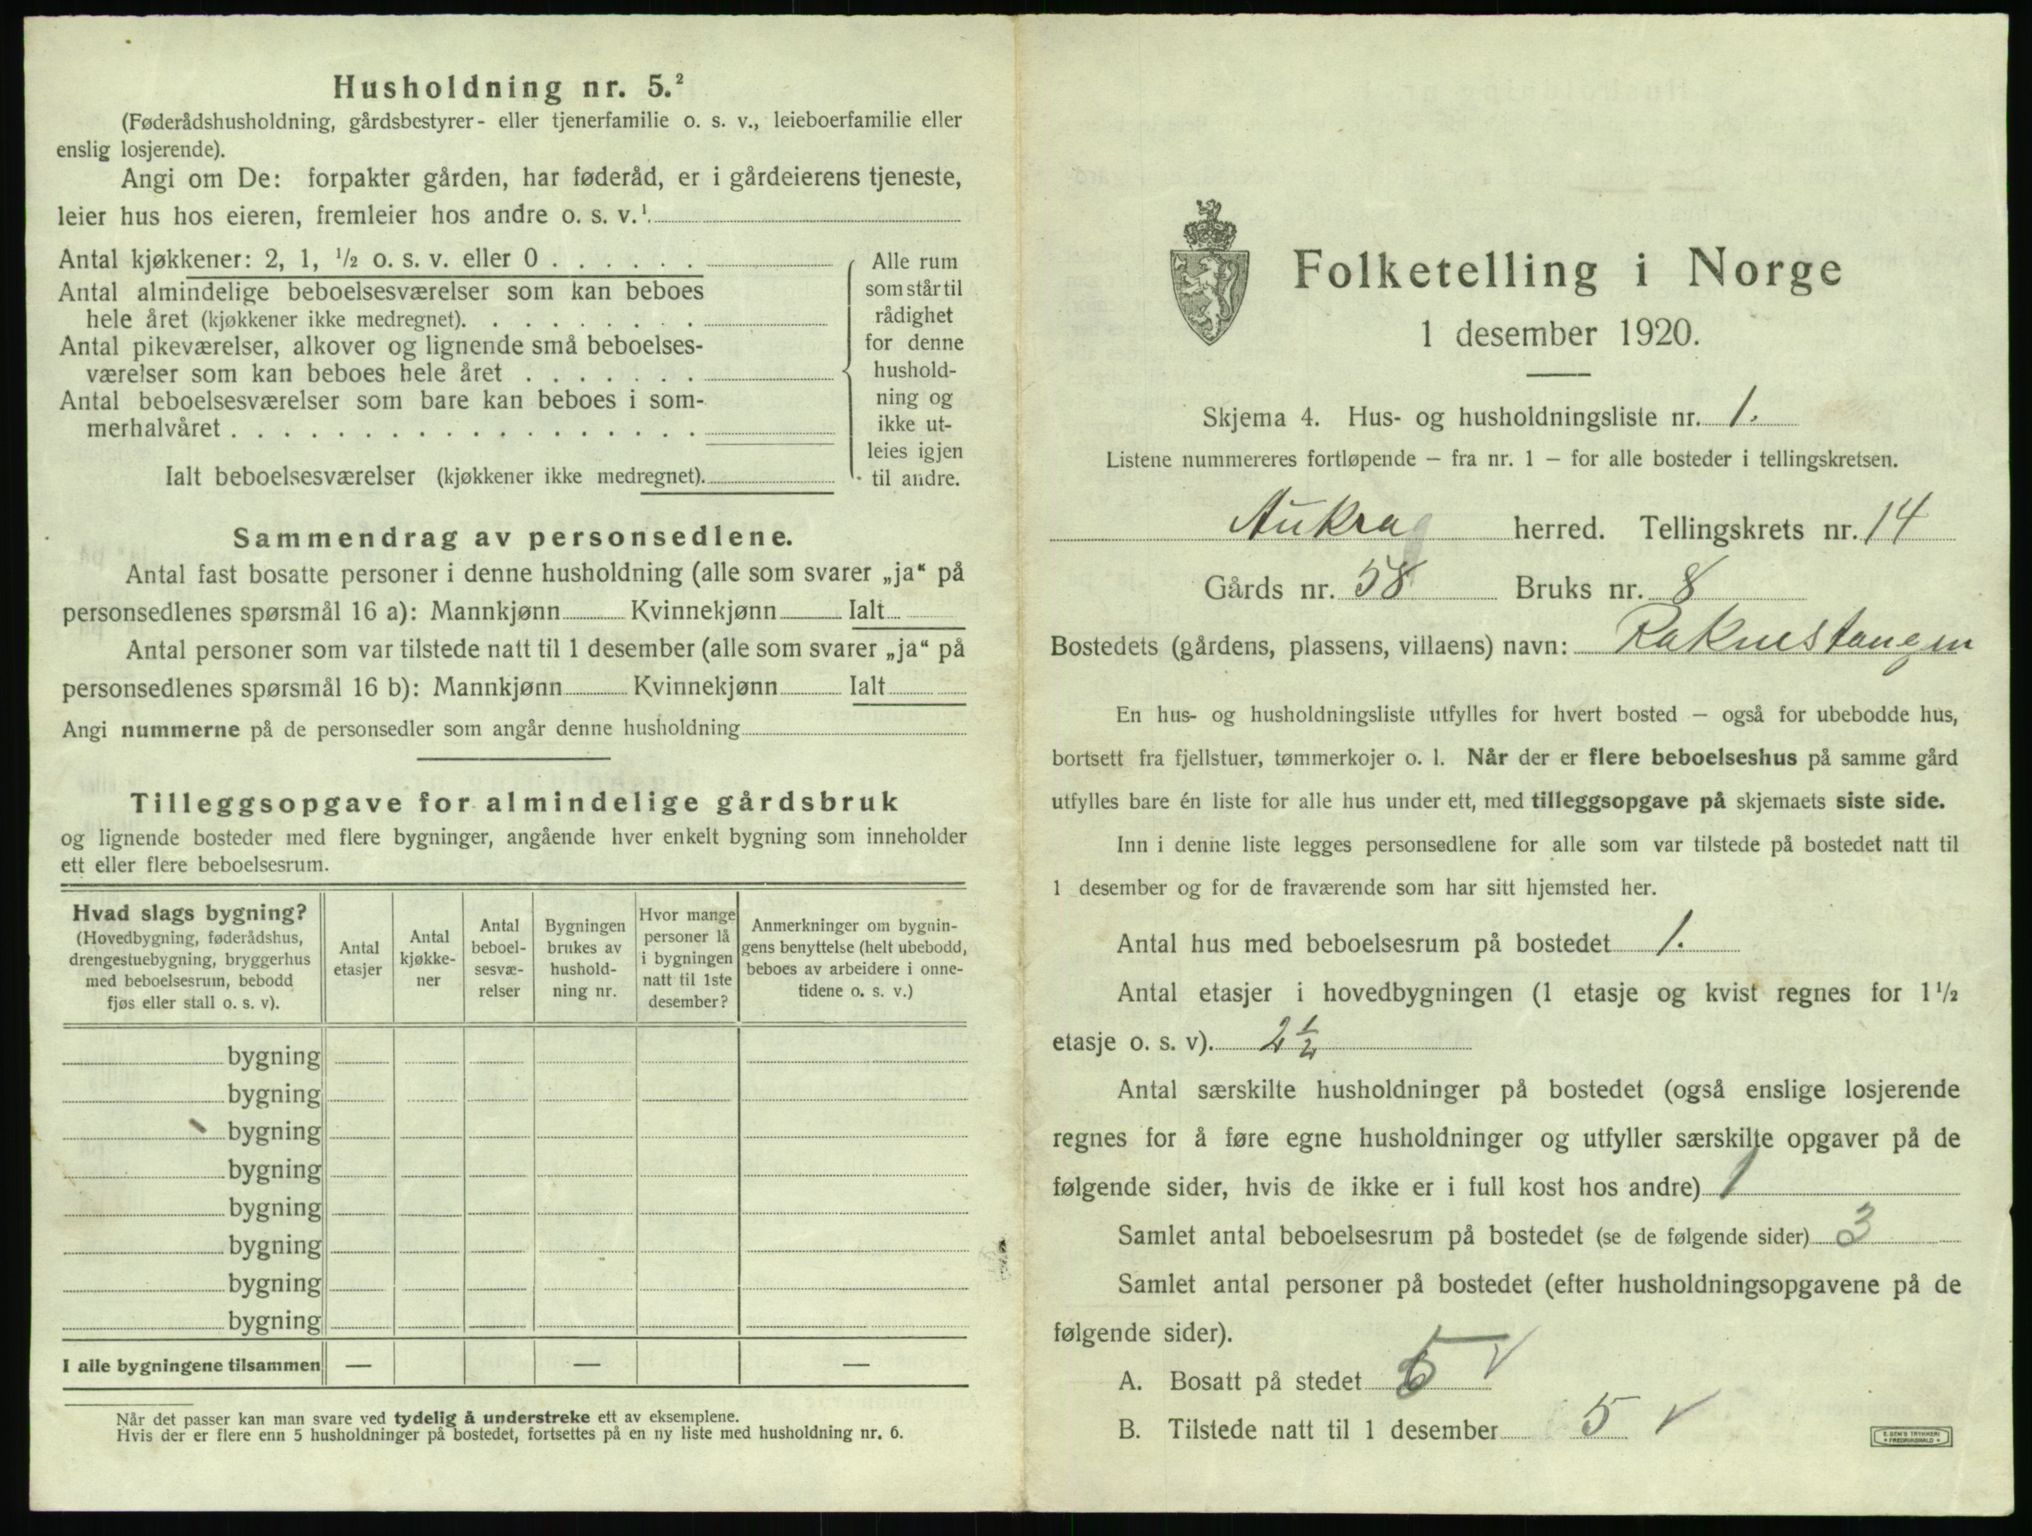 Husholdning nr. 5.²
(Føderådshusholdning, gårdsbestyrer- eller tjenerfamilie o. s. v., leieboerfamilie eller
enslig losjerende).
Angi om De: forpakter gården, har føderåd, er i gårdeierens tjeneste,
leier hus hos eieren, fremleier hos andre o. s. v.¹
Antal kjøkkener: 2, 1, ½ o. s. v. eller 0 . . . . . .
Antal almindelige beboelsesværelser som kan beboes
hele året (kjøkkener ikke medregnet). . . . . . . . .
Antal pikeværelser, alkover og lignende små beboelses-
værelser som kan beboes hele året . . . . . . .
Antal beboelsesværelser som bare kan beboes i som-
merhalvåret . . . . . . . . . . . . . . . . . .
Ialt beboelsesværelser (kjøkkener ikke medregnet).
Alle rum
som står til
rådighet
for denne
hushold-
ning og
ikke ut-
leies igjen
til andre.
Sammendrag av personsedlene.
Antal fast bosatte personer i denne husholdning (alle som svarer „ja“ på
personsedlenes spørsmål 16 a): Mannkjønn Kvinnekjønn Ialt
Antal personer som var tilstede natt til 1 desember (alle som svarer „ja“ på
personsedlenes spørsmål 16 b): Mannkjønn Kvinnekjønn Ialt
Angi nummerne på de personsedler som angår denne husholdning
Tilleggsopgave for almindelige gårdsbruk
og lignende bosteder med flere bygninger, angående hver enkelt bygning som inneholder
ett eller flere beboelsesrum.
Hvad slags bygning?
(Hovedbygning, føderådshus,
drengestuebygning, bryggerhus
med beboelsesrum, bebodd
fjøs eller stall o. s. v).
Antal
etasjer
Antal
kjøkke-
ner
Antal
beboel-
sesvæ-
relser
Bygningen
brukes av
hushold-
ning nr.
Hvor mange
personer lå
i bygningen
natt til 1ste
desember?
Anmerkninger om bygnin-
gens benyttelse (helt ubebodd,
beboes av arbeidere i onne-
tidene o. s. v.)
bygning
bygning
bygning
bygning
bygning
bygning
bygning
bygning
I alle bygningene tilsammen — — —
Når det passer kan man svare ved tydelig å understreke ett av eksemplene.
Hvis der er flere enn 5 husholdninger på bostedet, fortsettes på en ny liste med husholdning nr. 6.
Folketelling i Norge
1 desember 1920.
Skjema 4. Hus- og husholdningsliste nr. 1.
Listene nummereres fortløpende – fra nr. 1 – for alle bosteder i tellingskretsen.
Aukra herred. Tellingskrets nr. 14
Gårds nr. 58 Bruks nr. 8
Bostedets (gårdens, plassens, villaens) navn: Raknestangen
En hus- og husholdningsliste utfylles for hvert bosted – også for ubebodde hus,
bortsett fra fjellstuer, tømmerkojer o. l. Når der er flere beboelseshus på samme gård
utfylles bare én liste for alle hus under ett, med tilleggsopgave på skjemaets siste side.
Inn i denne liste legges personsedlene for alle som var tilstede på bostedet natt til
1 desember og for de fraværende som har sitt hjemsted her.
Antal hus med beboelsesrum på bostedet 1.
Antal etasjer i hovedbygningen (1 etasje og kvist regnes for 1½
etasje o. s. v). 2½
Antal særskilte husholdninger på bostedet (også enslige losjerende
regnes for å føre egne husholdninger og utfyller særskilte opgaver på de
følgende sider, hvis de ikke er i full kost hos andre) 1
Samlet antal beboelsesrum på bostedet (se de følgende sider) 3
Samlet antal personer på bostedet (efter husholdningsopgavene på de
følgende sider).
A. Bosatt på stedet 5 ✓
B. Tilstede natt til 1 desember 5 ✓
E. SEM'S TRYKKERI
FREDRIKSHALD